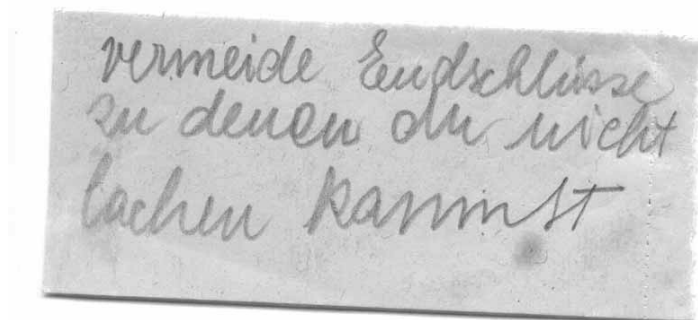 vermeide Endschlüsse
zu denen du nicht
lachen kannst